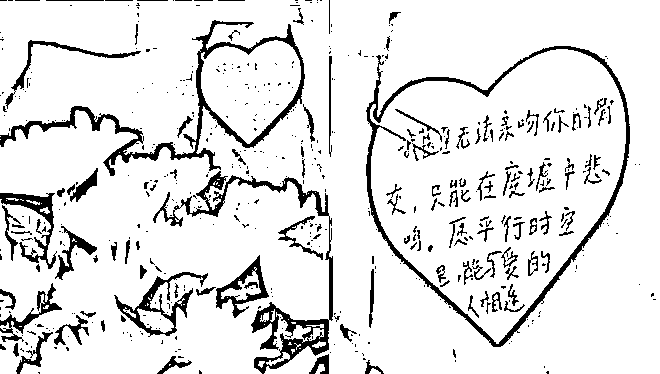 我甚至无法亲吻你的骨
灰，只能在废墟中悲
鸣。愿平行时空
里，能与爱的
人相逢